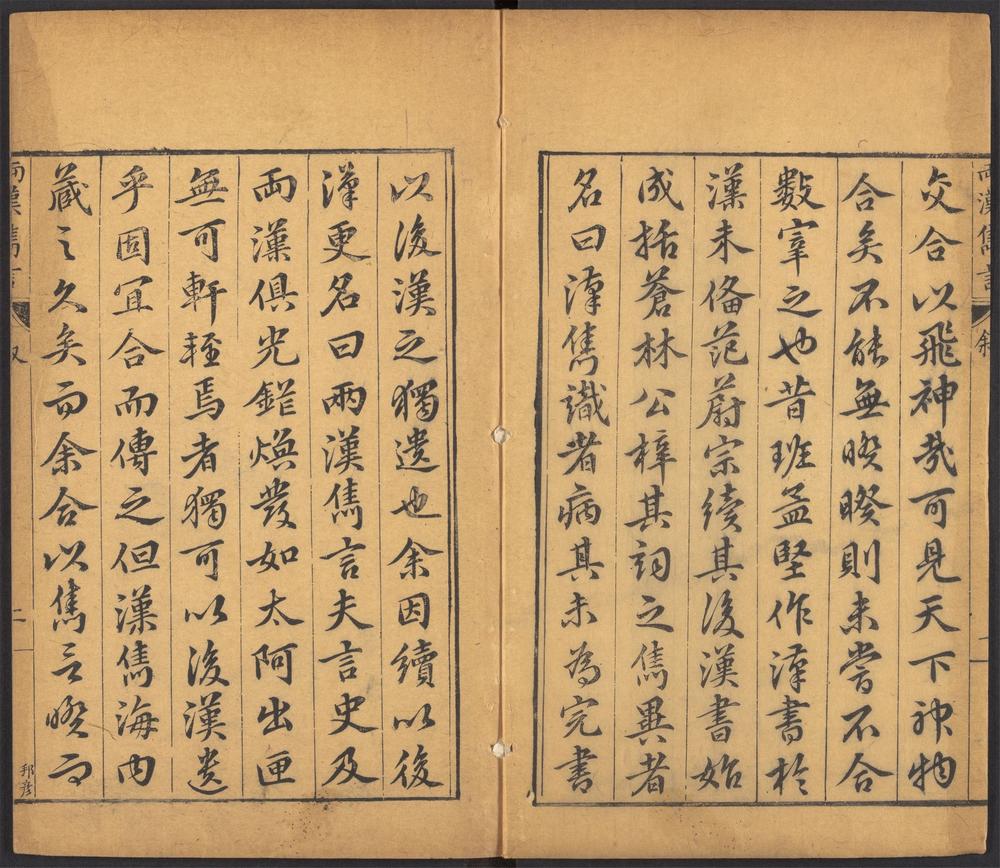 兩漢雋言 叙 一
交合以飛神哉可見天下神物
合矣不能無暌暌則未嘗不合
數寔之也昔班孟堅作漢書於
漢未備范蔚宗續其後漢書始
成括蒼林公梓其詞之雋異者
名曰漢雋識者病其未為完書
以後漢之獨遺也余因續以後
漢更名曰兩漢雋言夫言史及
兩漢俱光錯煥發如太阿出匣
無可軒輊焉者獨可以後漢遺
乎固宜合而傳之但漢雋海內
藏之久矣而余合以雋言暌而
兩漢雋言 叙 二
邦彥